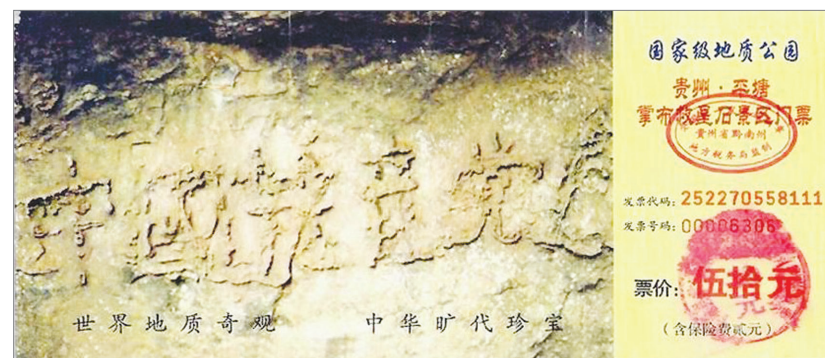 中國共產党
世界地质奇观 中华旷代珍宝
国家级地质公园
贵州·平塘
掌布救星石景区门票
贵州省黔南州
地方税务局监制
发票代码:252270558111
发票号码:00006306
票价:伍拾元
(含保险费贰元)